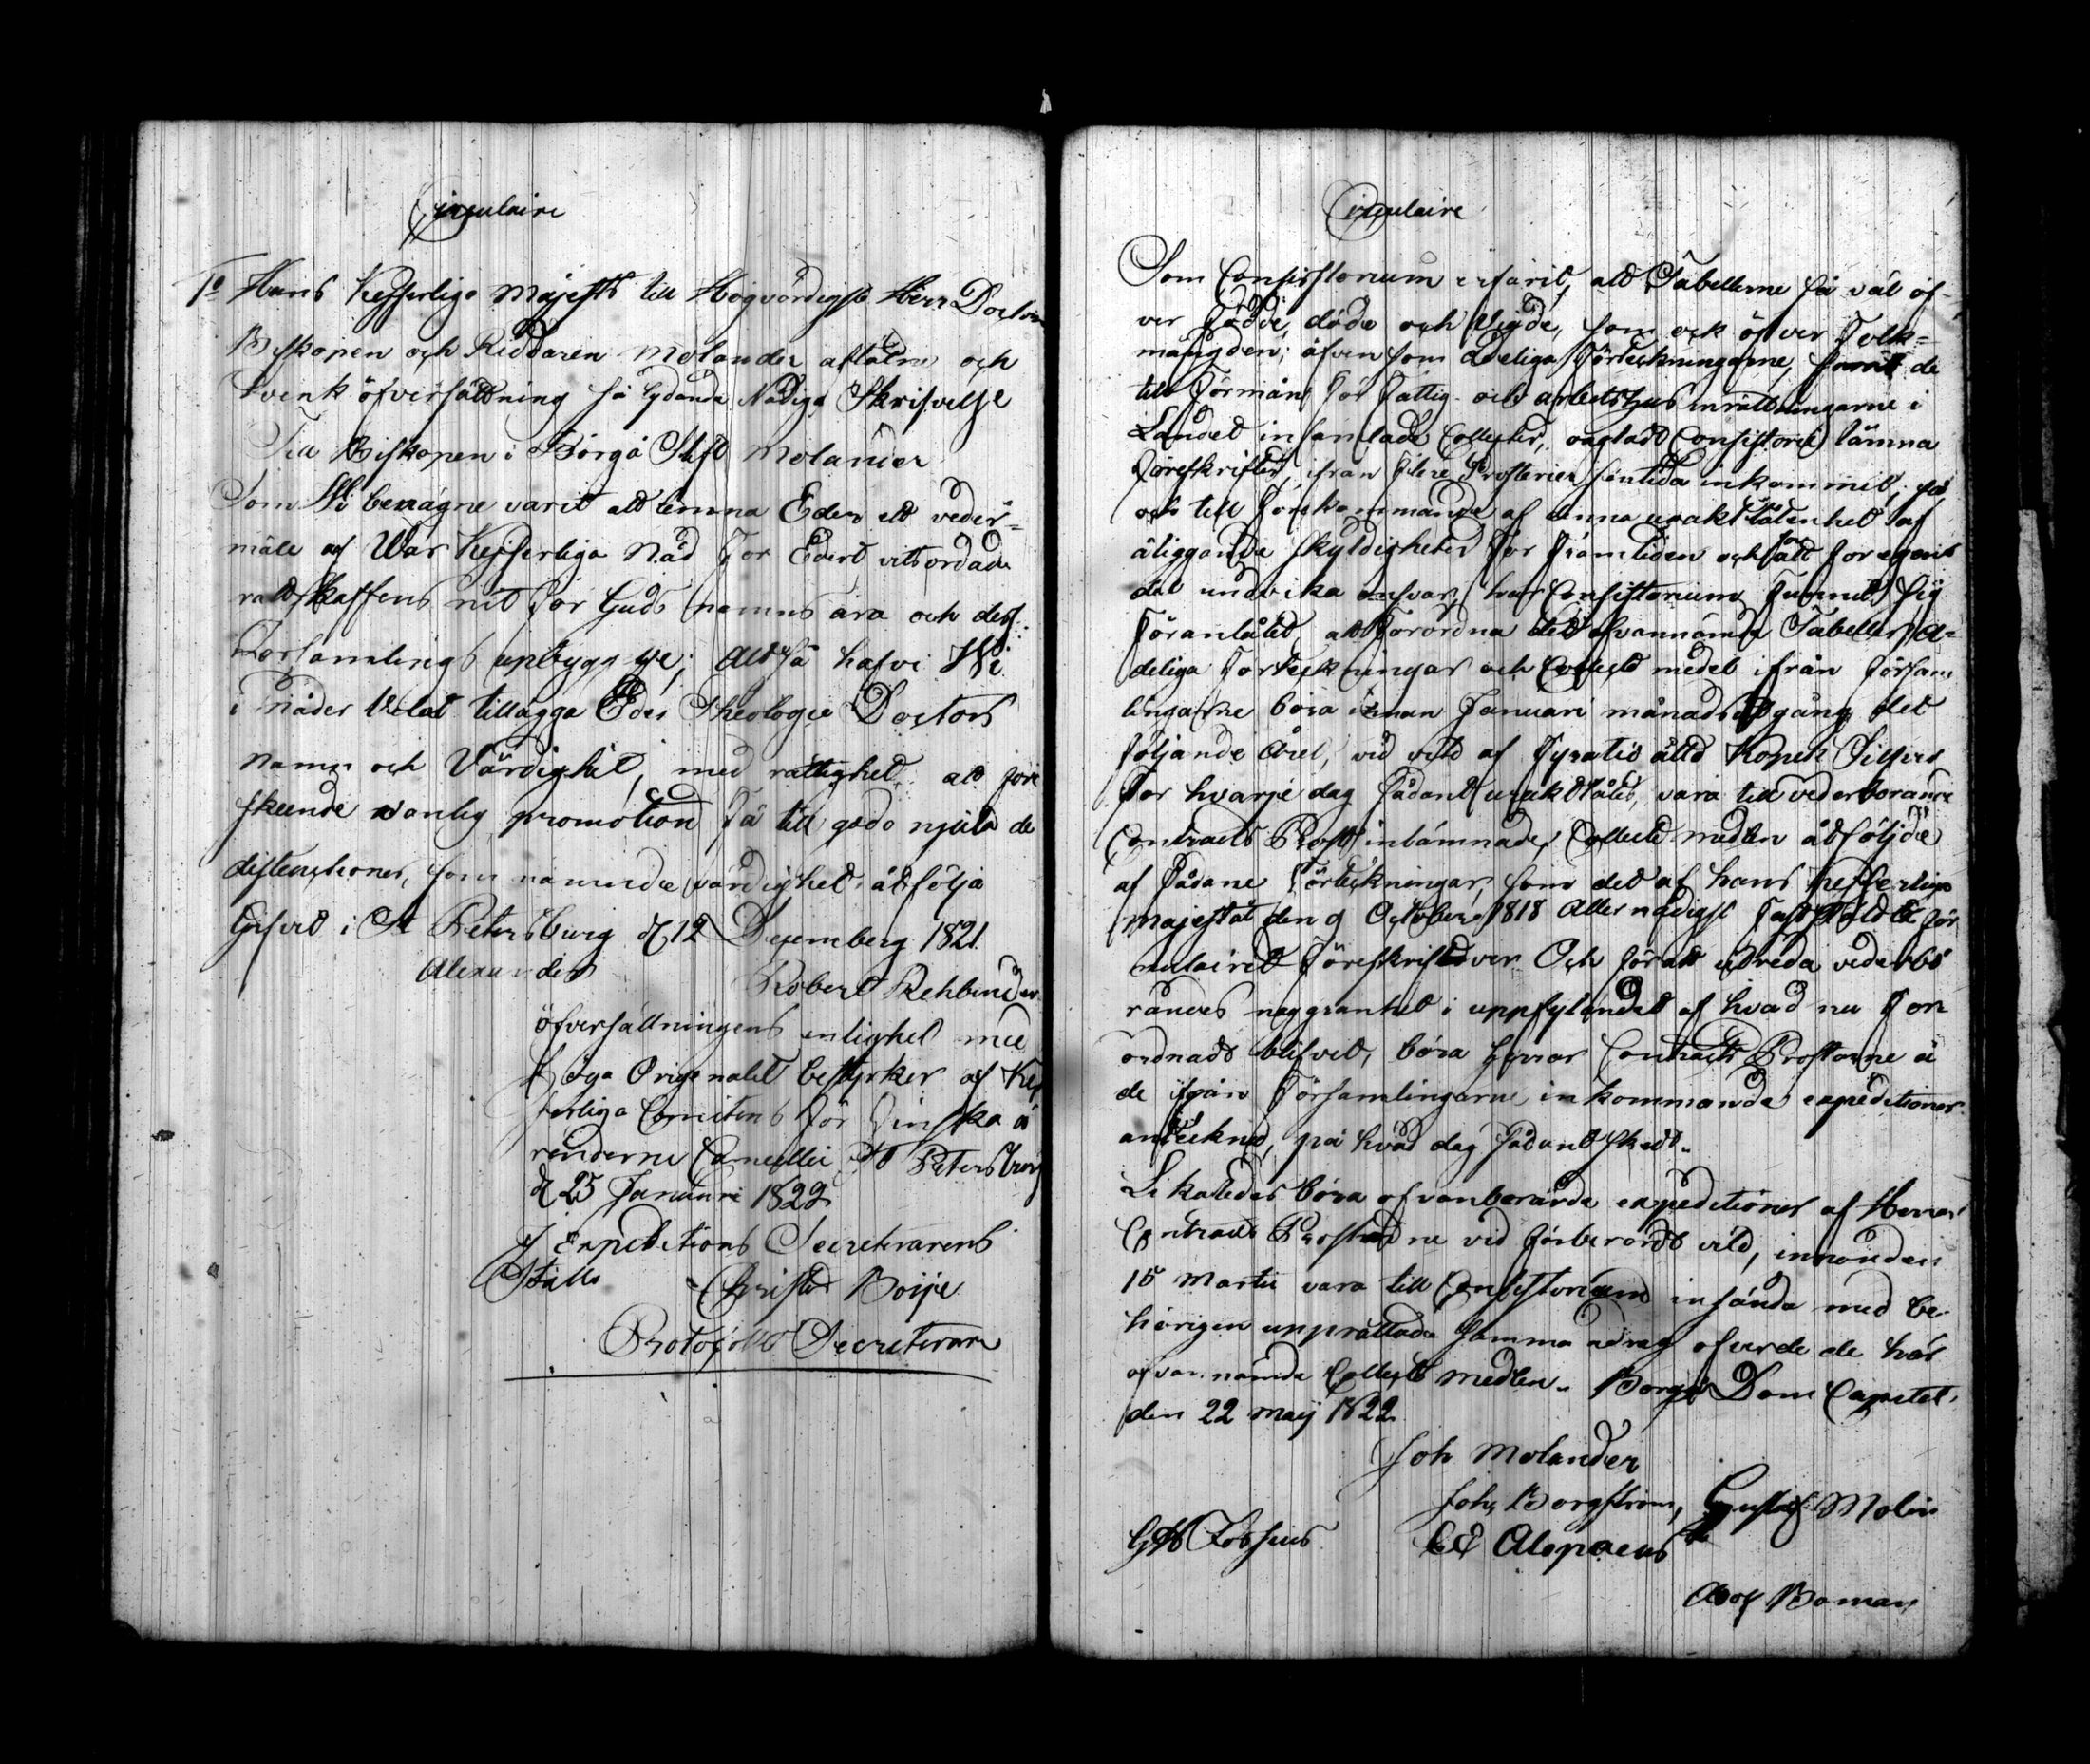 Circulaire
1o Hans Kejserliga Majests till Högvördigste Herr Doctorn
Biskopen och Riddaren Molander aflåtne och
Svensk öfversättning så lydande Nådiga Skrifvelse
Till Biskopen i Borgå Stift Molander
Som Wi benägne varit att lemna Eder ett veder-
mäle af Wår Kejserliga Nåd för Edert vittsordade
rättskaffens nit för Guds namns ära och dess
Församlings upbyggelse; Altså hafve Wi
i Nåder velat tillägga Eder Theologie Doctors
namn och Värdighet, med rättighet att före
skeende vanlig promotion få till godo njuta de
distinctioner, som nämnde värdighet åtfölja
Gifvet i St Petersburg d 12 Decemberg 1821.
Alexander
Robert Rehbinder
öfversättningens enlighet med
Höga Originalet bestyrker af Kej
serliga Comitens för Finska ä
renderne Cancellie St Petersburg
d 25 Januari 1822
I Expeditions Secreterarens
Ställe Christer Boije
Protocolls Secreterare
Circulaire
Som Consistorium erfarit, att Tabellerne så väl öf-
ver Födde, döde och Vigde, som ock öfver Folk-
mängden; äfven som Årliga Förteckningarne, samt de
till Förmån för Fattig och arbetshus inrättningarne i
Landet insamlade Collecter, oagtadt Consistorii lämna
Föreskrifter, ifrån flere Prosterier sentida inkommit; så
och till Förekommande af denna uraktlåtenhet af
åliggande skyldigheter för framtiden och för att for egenit
det undvika ansvar, har Consistorium funnit sig
Föranlåtet, att Förordna det ofvannämnde Tabeller, Å-
deliga Förteckningar och Collect medel ifrån Försam
lingarne böra innan Januari månads utgång det
följande året, vid vite af Fyratio åtta Kopek Silfver
för hvarje dag sådant uraktlåtes, vara till vederbörande
Contracts Prost inlämnade, Collect medlen åtföljde
af sådane Förteckningar, som det af Hans Kejserliga
Majestät den 9 October 1818 Aller nådigst Fastställde for
mulairet Föreskrifver Och för att utreda vederbö
randes noggranhet i uppfyllandet af hvad nu För
ordnadt blifvet, böra Herrar Contracts Prostarne å
de ifrån Församlingarne inkommande expeditioner
anteckna, på hvad dag sådant skedt.
Likaledes böra ofvanberörde expeditioner af Herrar
Contracts Prostarne vid förberördt vite, innan den
15 Martii vara till Consistorium insända med be-
hörigen upprättade Samma ndrag öfver de här
ofvannämde Collects medlen. Borgå Dom Capitel
den 22 Maij 1822
Joh Molander
Joh. Borgström, Gustaf Molin
C E Alopaeus
Adolf Boman